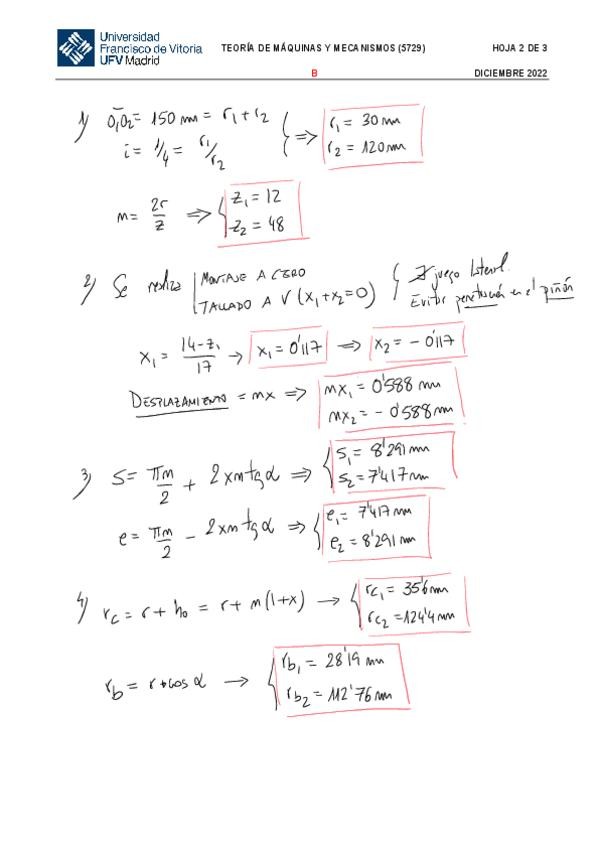 Universidad
Francisco de Vitoria
UFV Madrid
TEORÍA DE MÁQUINAS Y MECANISMOS (5729)
HOJA 2 DE 3
B
DICIEMBRE 2022
1) O₁O₂ = 150 mm = r₁ + r₂
i = 1/4 = r₁/r₂
⇒ r₁ = 30 mm
r₂ = 120 mm
m = 2r/z ⇒ z₁ = 12
z₂ = 48
2) Se realiza
MONTAJE A CERO
TALLADO A V (x₁+x₂=0)
juego lateral.
Evitar penetración en el piñón
x₁ = 14-z₁/17 → x₁ = 0'117 ⇒ x₂ = - 0'117
DESPLAZAMIENTO = mx ⇒ mx₁ = 0'588 mm
mx₂ = - 0'588 mm
3) S = πm/2 + 2xmtgα ⇒ S₁ = 8'291 mm
S₂ = 7'417 mm
e = πm/2 - 2xmtgα ⇒ e₁ = 7'417 mm
e₂ = 8'291 mm
4) rc = r + h₀ = r + m(1+x) → rc₁ = 35'6 mm
rc₂ = 124'4 mm
rb = r·cos α → rb₁ = 28'19 mm
rb₂ = 112'76 mm